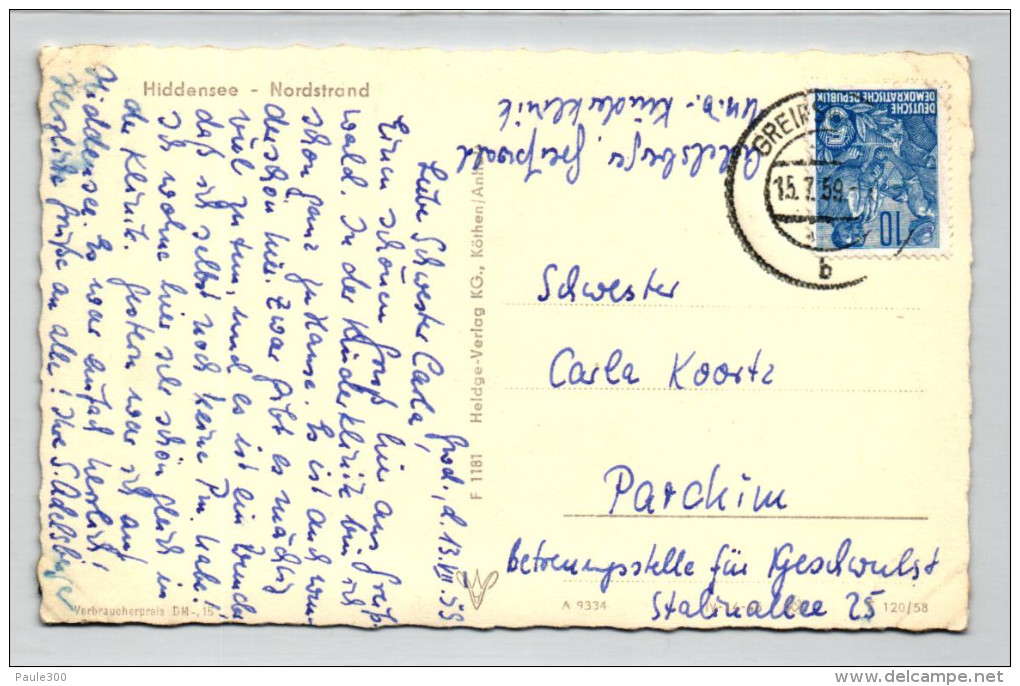 Hiddensee - Nordstrand
Grwd., d. 13.VII.59
Liebe Schwester Carla!
Einen schönen Gruß hier aus Greifs-
wald. In der Kinderklinik bin ich
schon ganz zu Hause. Es ist auch wun-
derschön hier. Zwar gibt es mächtig
viel zu tun, und es ist ein Wunder
daß ich selbst noch keine Pm. habe!
Ich wohne hier sehr schön gleich in
der Klinik. Gestern war ich auf
Hiddensee. Es war einfach herrlich!
Herzliche Grüße an alle! Ihre S. Adelsberger
Verbraucherpreis DM -,15
F 1181 Heldge-Verlag KG., Köthen/Anh.
Adelsberger, Greifswald
Univ.-Kinderklinik
DEUTSCHE
DEMOKRATISCHE REPUBLIK
10
GREIF
15.7.59
b
Schwester
Carla Koortz
Parchim
Betreuungsstelle für Geschwulst
Stalinallee 25
A 9334
120/58
Paule300